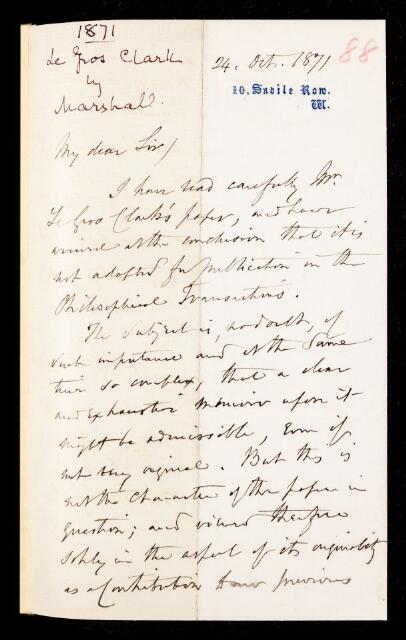 1871
Le Gros Clark
by
Marshall.
88
24. Oct. 1871
10, Savile Row.
W.
My dear Sir/
I have read carefully Mr.
Le Gros Clark's paper, and have
arrived at the conclusion that it is
not adapted for publication in the
Philosophical Transactions.
The subject is, no doubt, of
such importance and at the same
time so complex, that a clear
and exhaustive memoir upon it
might be admissible, even if
not very original. But this is
not the character of the paper in
question; and viewed therefore
solely in the aspect of its originality
as a contribution to our previous